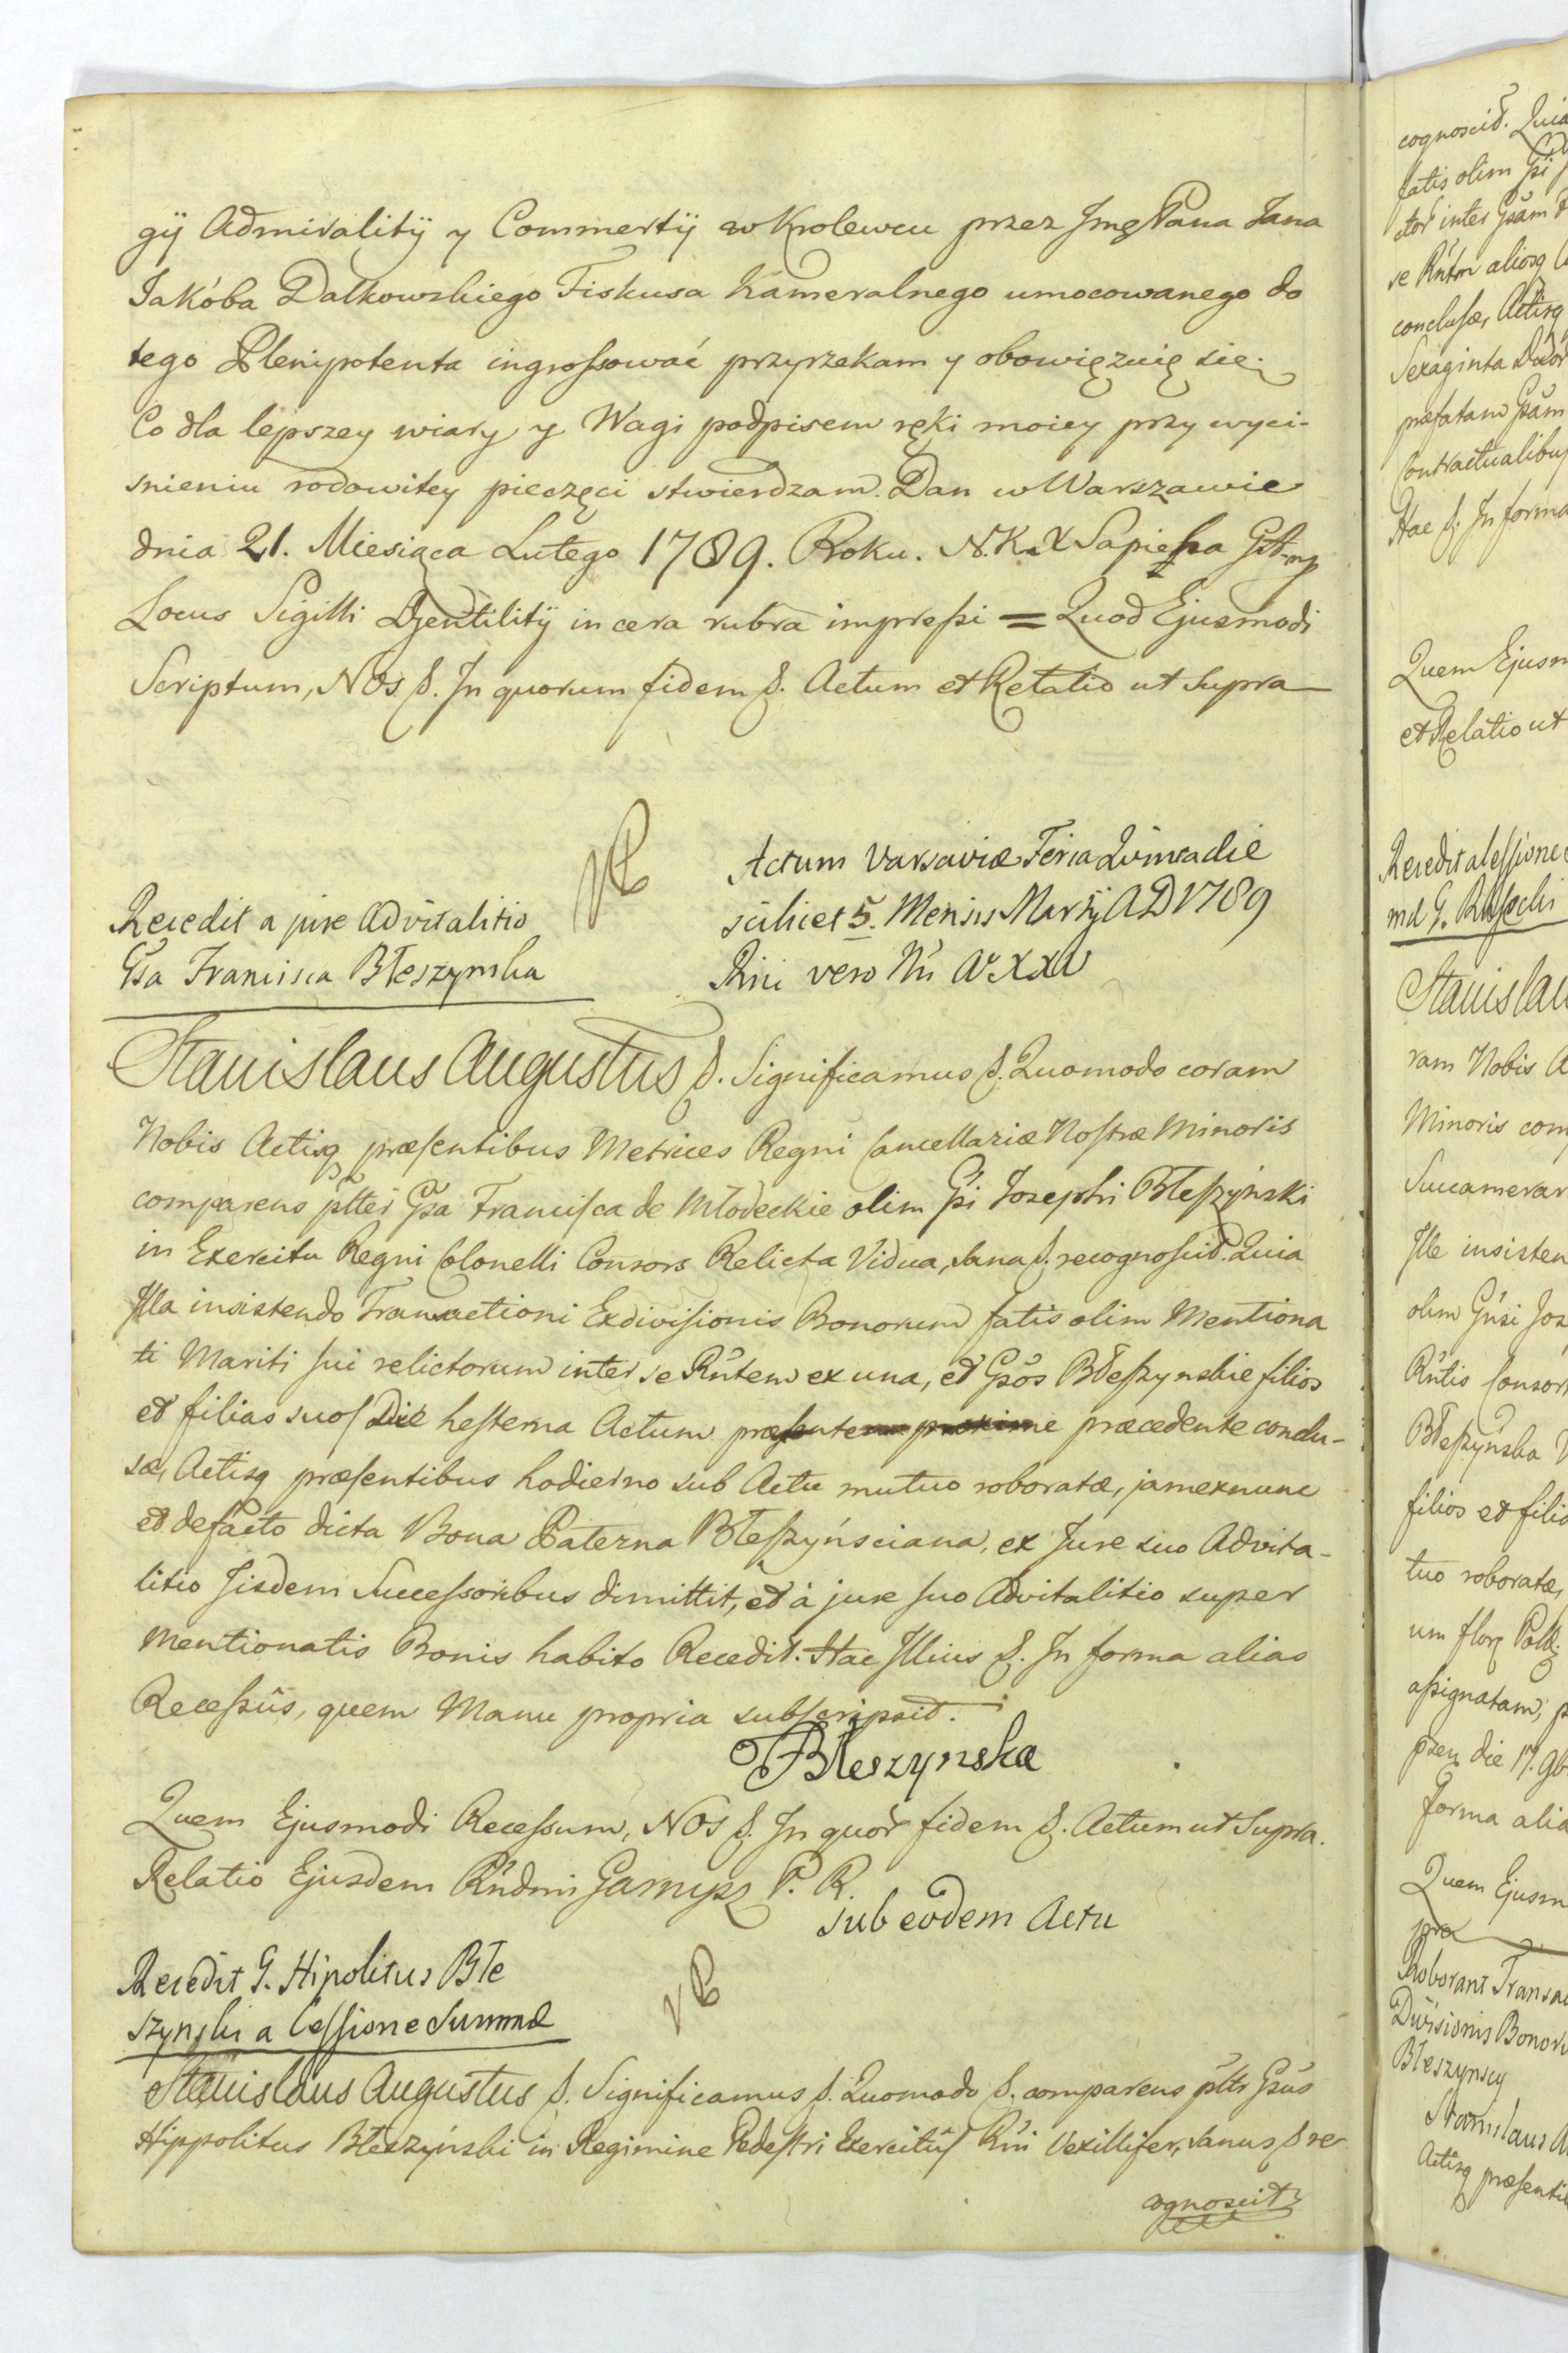 gij Admiralitij y Commertij w Krolewcu przez Jmę Pana Jana
Jakóba Dałkowskiego Fiskusa Kameralnego umocowanego do
tego Plenipotenta ingrossować przyrzekam y obowięzuię się.
Co dla lepszey wiary y Wagi podpisem ręki moiey przy wyci-
snieniu rodowitey pieczęci stwierdzam. Dan w Warszawie
dnia 21. Miesiąca Lutego 1789. Roku. N. K. X Sapieha
Locus Sigilli Gentilitij in cera rubra impressi = Quod Ejusmodi
Scriptum, Nos &. In quorum fidem &. Actum et Relatio ut supra
Actum Varsaviæ Feria Quinta die
scilicet 5. Mensis Martij A D 1789
Rni vero Nri Ao XXV
Recedit a jure Advitalitio
Gsa Francisca Błeszynska
Stanislaus Augustus &. Significamus &. Quomodo coram
Nobis Actisq præsentibus Metrices Regni Cancellariæ Nostræ Minoris
comparens pltter Gsa Francisca de Młodeckie olim Gsi Josephi Błeszyński
in Exercitu Regni Colonelli Consors Relicta Vidua, sana &. recognoscit. Quia
Illa insistendo Transactioni Exdivisionis Bonorum fatis olim Mentiona
ti Mariti sui relictorum inter se Rntem ex una, et Gsos Błeszynskie filios
et filias suos Die hesterna Actum præsentem proxime præcedente conclu-
sæ, Actisq præsentibus hodierno sub Actu mutuo roboratæ, jam ex nunc
et de facto dicta Bona Paterna Błeszyńsciana, ex Jure suo Advita-
litio Iisdem Successoribus dimittit, et à jure suo Advitalitio super
Mentionatis Bonis habito Recedit. Hac Illius &. In forma alias
Recessûs, quem Manu propria subscripsit.
FBłeszynska
Quem Ejusmodi Recessum, Nos &. In quor fidem &. Actum ut Supra.
Relatio Ejusdem Rndmi Garnysz P. R.
Sub eodem Actu
Recedit G. Hipolitus Błe
szynski a Cessione Summæ
Stanislaus Augustus &. Significamus &. Quomodo &. comparens pltr Gsus
Hippolitus Błeszyński in Regimine Pedestri Exercitûs Rni Vexillifer, sanus & re
cognoscit
cognoscit. Quia
fatis olim Gsi
inter Gsam
se Rntm aliosq
conclusæ, Actisq
Sexaginta
præfatam Gsam
Contractualibus
Hac &. In forma
Quem Ejusm
et Relatio ut
Recedit a Cessione
Stanislau
ram Nobis A
Minoris com
Succamerar
Ille insisten
olim Gnsi Jos
Rntis Consor
Błeszyńska
filios et filia
tuo roboratæ,
um flor Poll
assignatam,
die 17. 9b
forma alia
Quem Ejusm
pra
Roborant Transa
Divisionis Bonor
Błeszynscy
Stanislaus A
Actisq præsenti